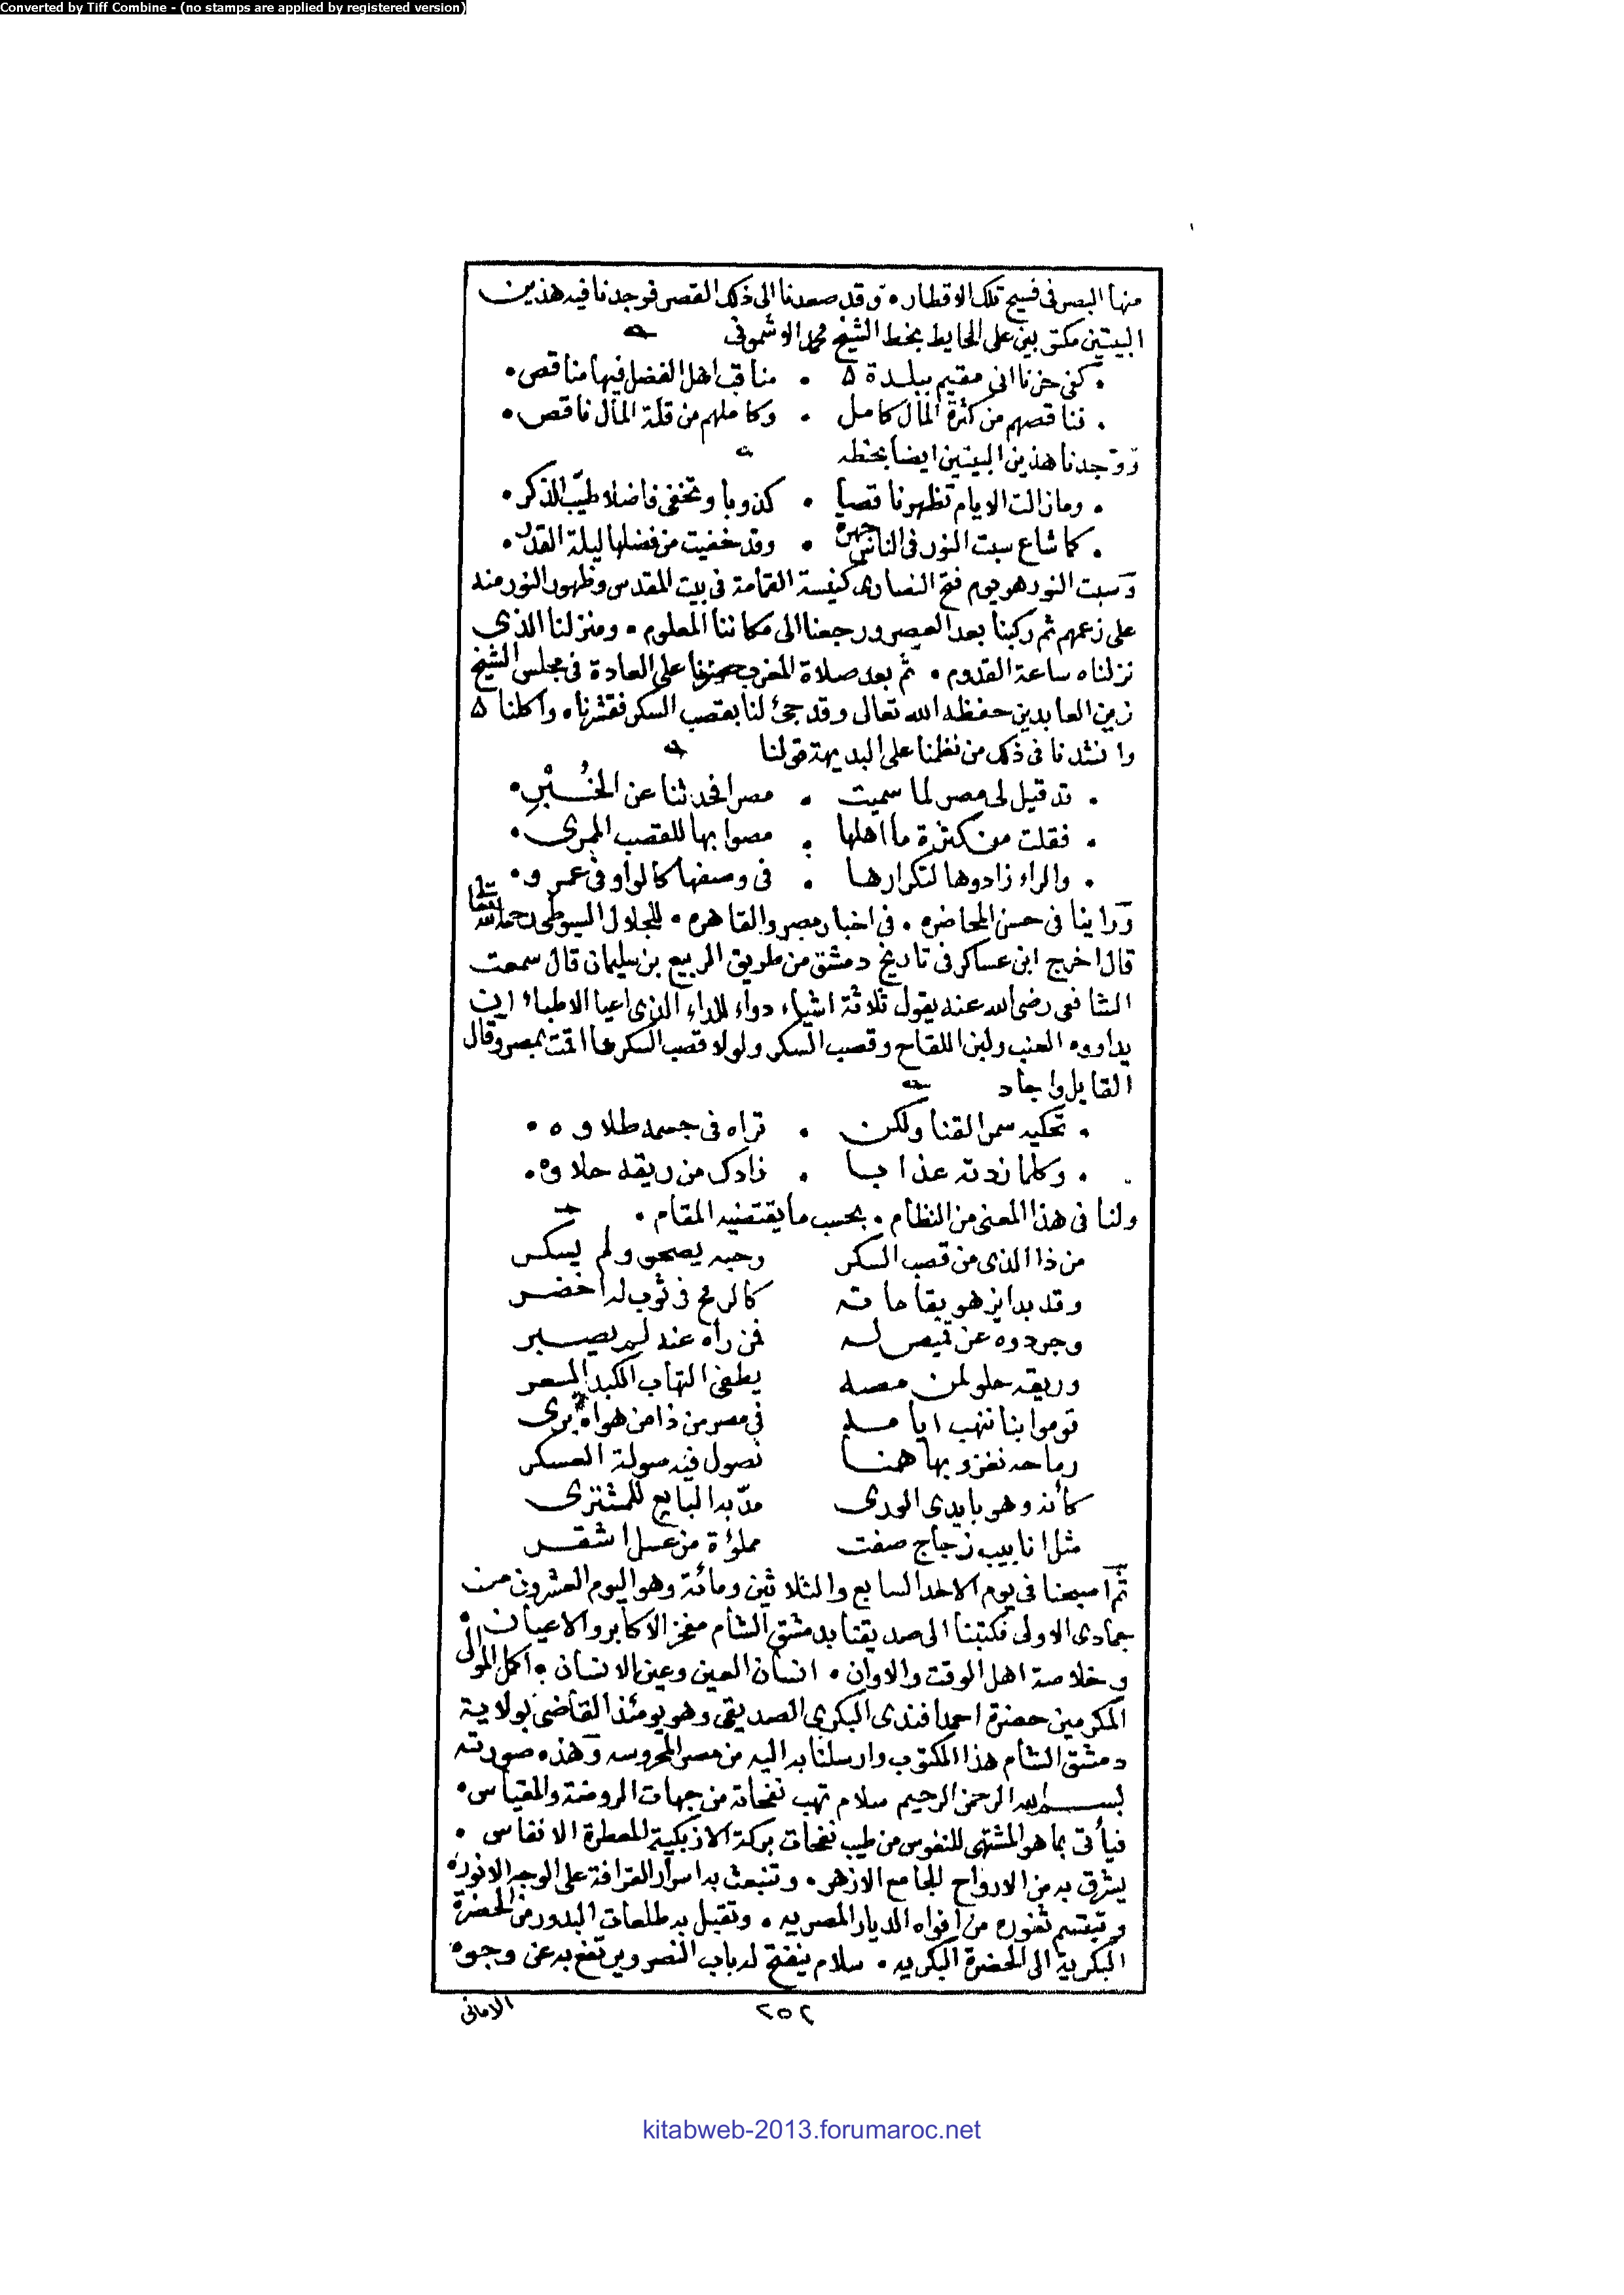 Converted by Tiff Combine - (no stamps are applied by registered version)
منها البصر في فسيح تلك الاقطاره وقد صعدنا الى ذلك القصر فوجدنا فيه هذين
البيتين مكتوبين على الحايط بخط الشيخ محمد الاوشموني
• كفى حزنا انى مقيم ببلدة • مناقب اهل الفضل فيها مناقص •
• فناقصهم من كثرة المال كامل • وكاملهم من قلة المال ناقص •
ووجدنا هذين البيتين ايضا بخطه
• ومازالت الايام تظهر ناقصا • كذوبا وتخفى فاضلا طيب الذكر •
• كما شاع سبت النور في الناس جهرة • وقد خفيت من فضلها ليلة القدر •
وسبت النور هو يوم فتح النصارى كنيسة القمامة في بيت المقدس وظهور النور منه
على زعمهم ثم ركبنا بعد العصر ورجعنا الى مكاننا المعلوم • ومنزلنا الذي
نزلناه ساعة القدوم • ثم بعد صلاة المغرب حضرنا على العادة في مجلس الشيخ
زين العابدين حفظه الله تعالى وقد جئ لنا بقصب السكر فقشرناه واكلنا
وانشدنا في ذلك من نظمنا على البديهة قولنا
• قد قيل لي مصر لما سميت • مصرا فحدثنا عن الخُبْرِ •
• فقلت من كثرة ما اهلها • مصوا بها للقصب المرى •
• والراء زادوها لتكرارها • في وصفها كالواو في عمرو •
ورأينا في حسن المحاضره • في اخبار مصر والقاهره • للجلال السيوطى رحمه الله تعالى
قال اخرج ابن عساكر في تاريخ دمشق من طريق الربيع بن سليمان قال سمعت
الشافعى رضى الله عنه يقول ثلاثة اشياء دواء للداء الذى اعيا الاطباء ان
يداووه العنب ولبن اللقاح وقصب السكر ولولا قصب السكر ما اقمت بمصر وقال
القايل واجاد
• تحكيه سمر القنا ولكن • تراه في جسمه طلاوه •
• وكلما زدته عذابا • زادك من ريقه حلاوه •
ولنا في هذا المعنى من النظام • بحسب ما يقتضيه المقام •
من ذا الذى من قصب السكر وحبه يصحو ولم يسكر
وقد بدا يزهو بقاماته كالرمح في ثوب له اخضر
وجردوه عن قميص له فمن رآه عنه لم يصبر
وريقه حلو لمن مصه يطفى التهاب الكبد المسعر
قوموا بنا ننهب ايامه في مصر من ذا من هواه برى
رماحه نغزو بها هنا نصول فيه صولة العسكر
كأنه وهو بايدى الورى مد به البايع للمشترى
مثل انابيب زجاج صفت مملوءة من عسل اشقر
ثم اصبحنا في يوم الاحد السابع والثلاثين ومائة وهو اليوم العشرون من
جمادى الاولى فكتبنا الى صديقنا بدمشق الشام مفخر الاكابر والاعيان •
وخلاصة اهل الوقت والاوان • انسان العين وعين الانسان • اكمل الموالى
المكرمين حضرة احمد افندى البكرى الصديقى وهو يومئذ القاضى بولاية
دمشق الشام هذا المكتوب وارسلنا به اليه من مصر المحروسه وهذه صورته
بسم الله الرحمن الرحيم سلام تهب نفحاته من جهات الروضة والمقياس •
فيأتى بما هو المشتهى للنفوس من طيب نفحات بركة الازبكية المعطرة الانفاس •
يشرق به من الارواح الجامع الازهر • وتنبعث به اسرار القرافة على الوجه الانوره
وتبتسم ثغوره من افواه الديار المصريه • وتقبل به طلعات البدور من الحضرة
البكرية الى الحضرة البكريه • سلام ينفتح له باب النصر ويرتفع به عن وجوه
الامانى
٢٥٢
kitabweb-2013.forumaroc.net